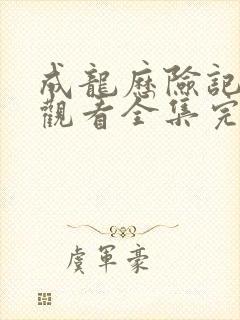 成龍歷險記
觀看全集完
虞軍豪